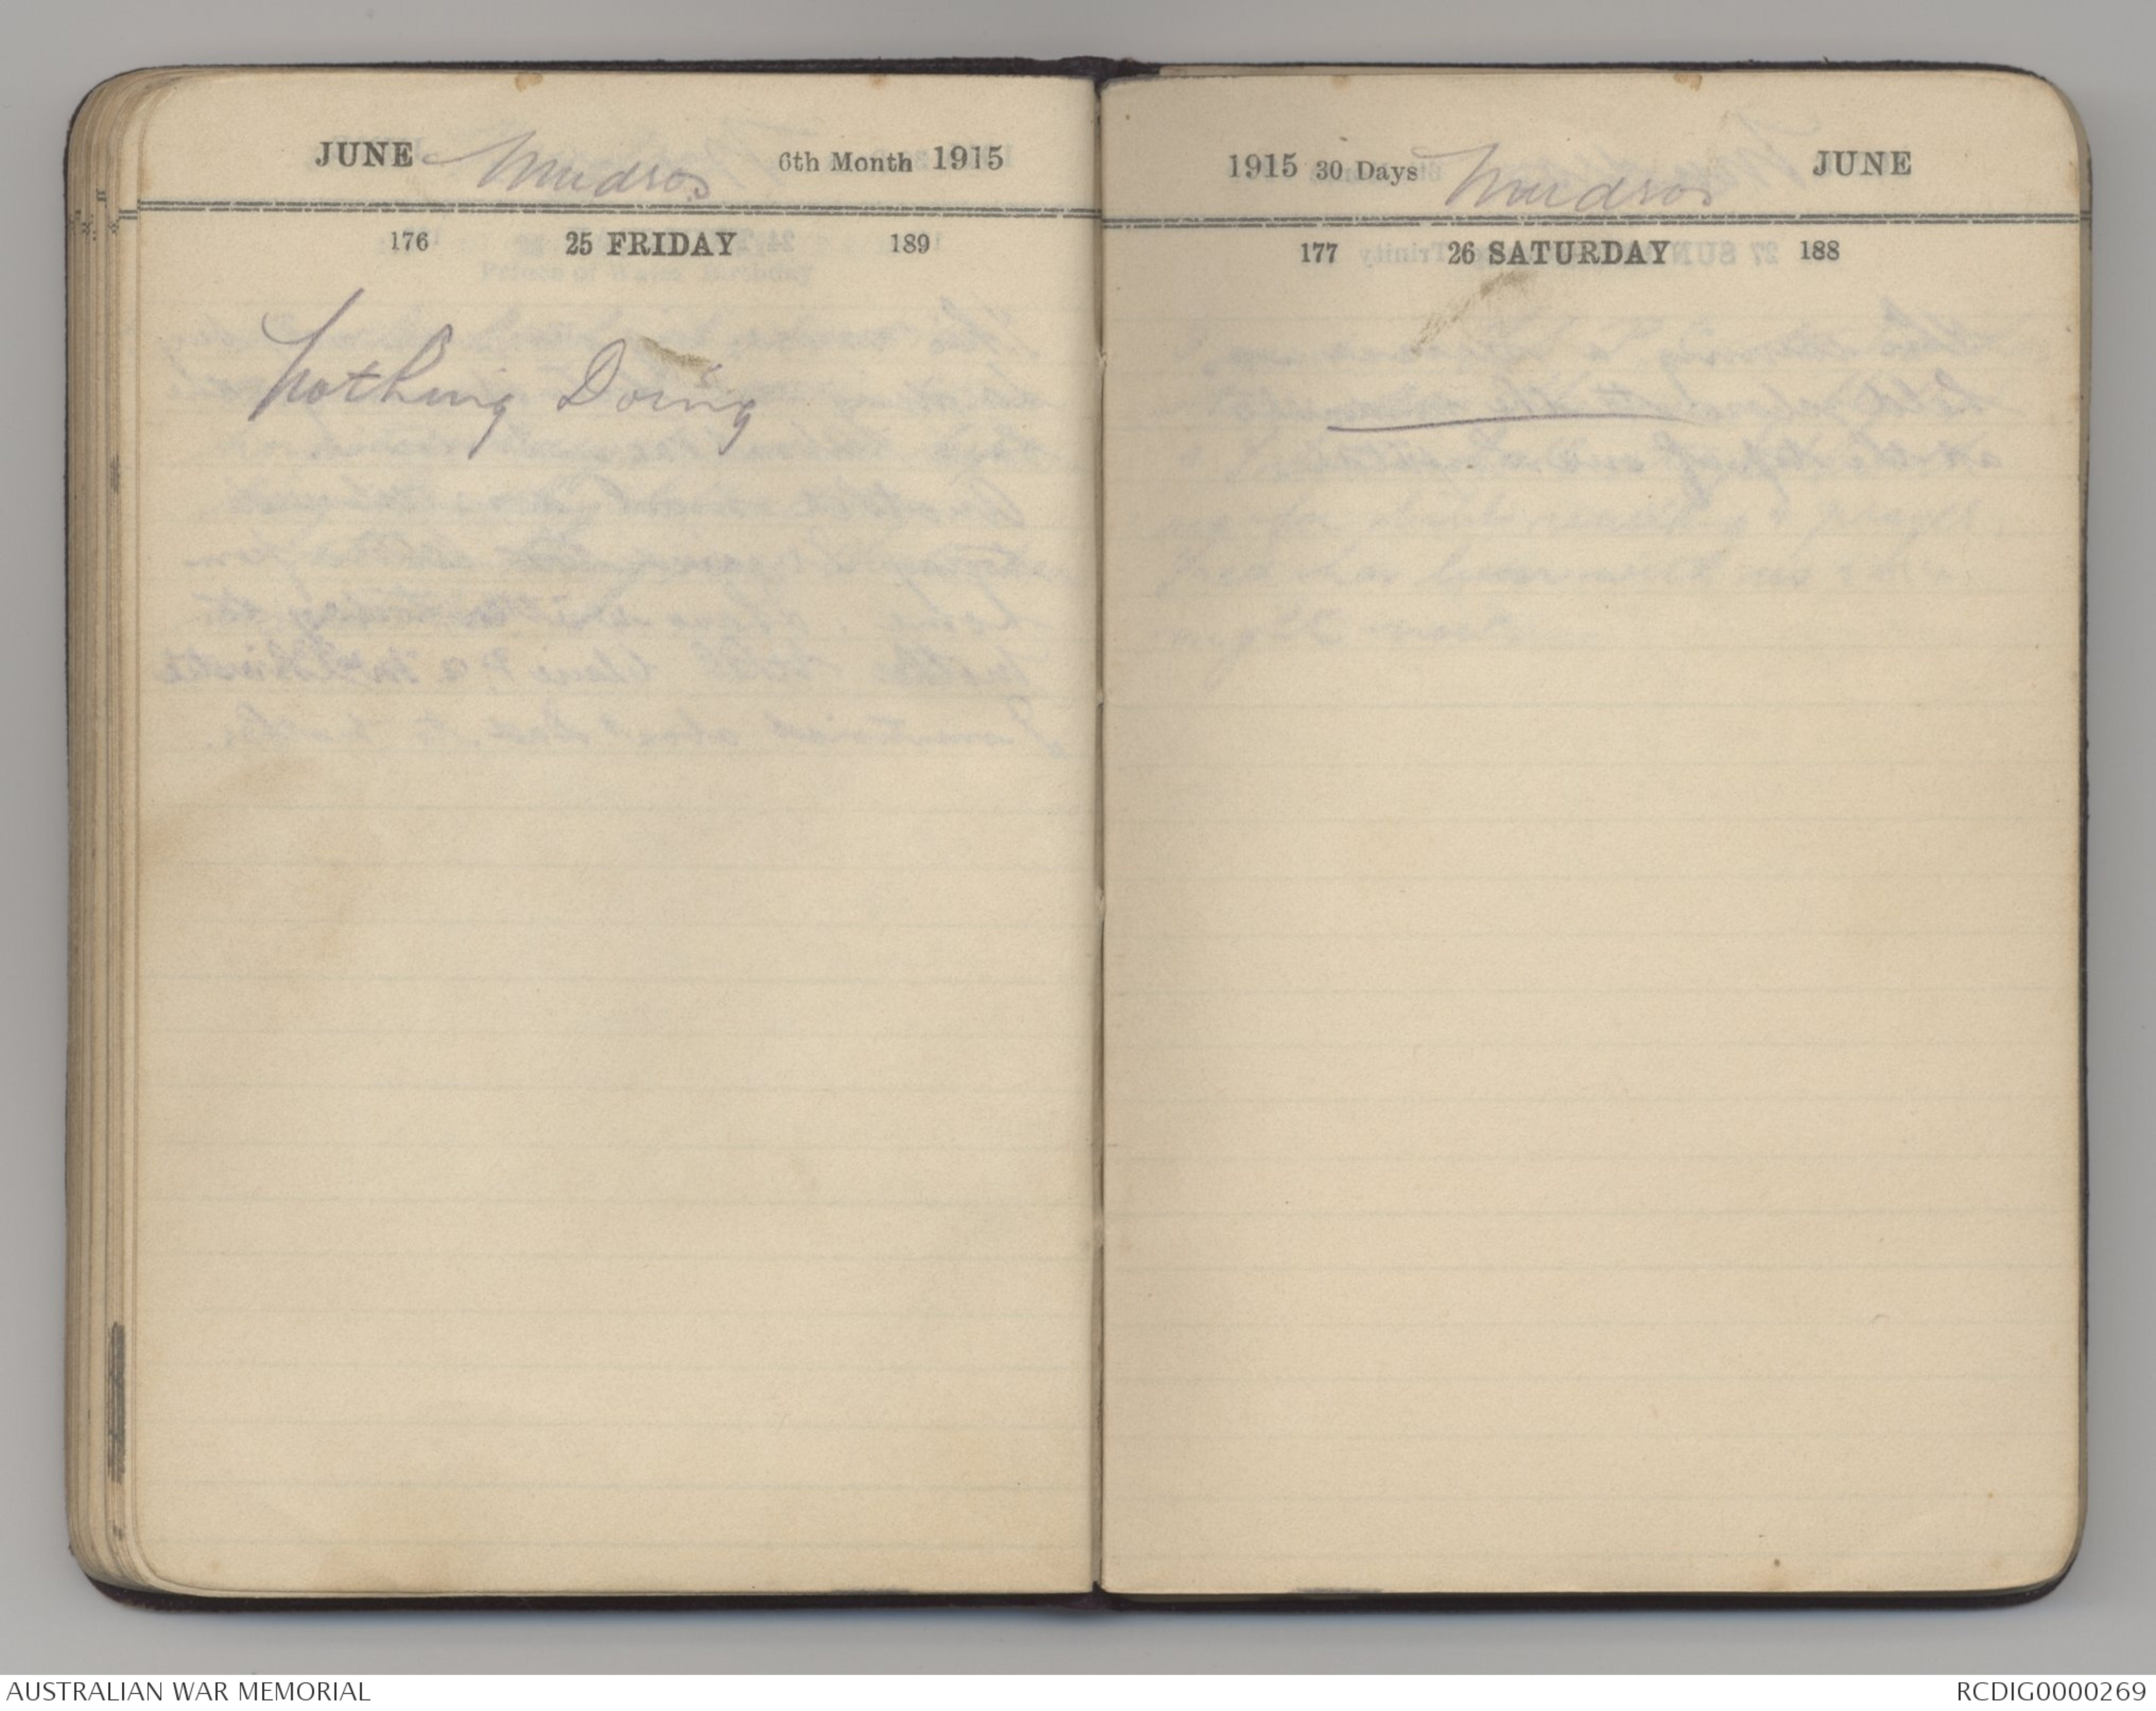 JUNE Mudros 6th Month 1915
176 25 FRIDAY 189
Nothing Doing
1915 30 Days Mudros JUNE
177 26 SATURDAY 188
AUSTRALIAN WAR MEMORIAL
RCDIG0000269